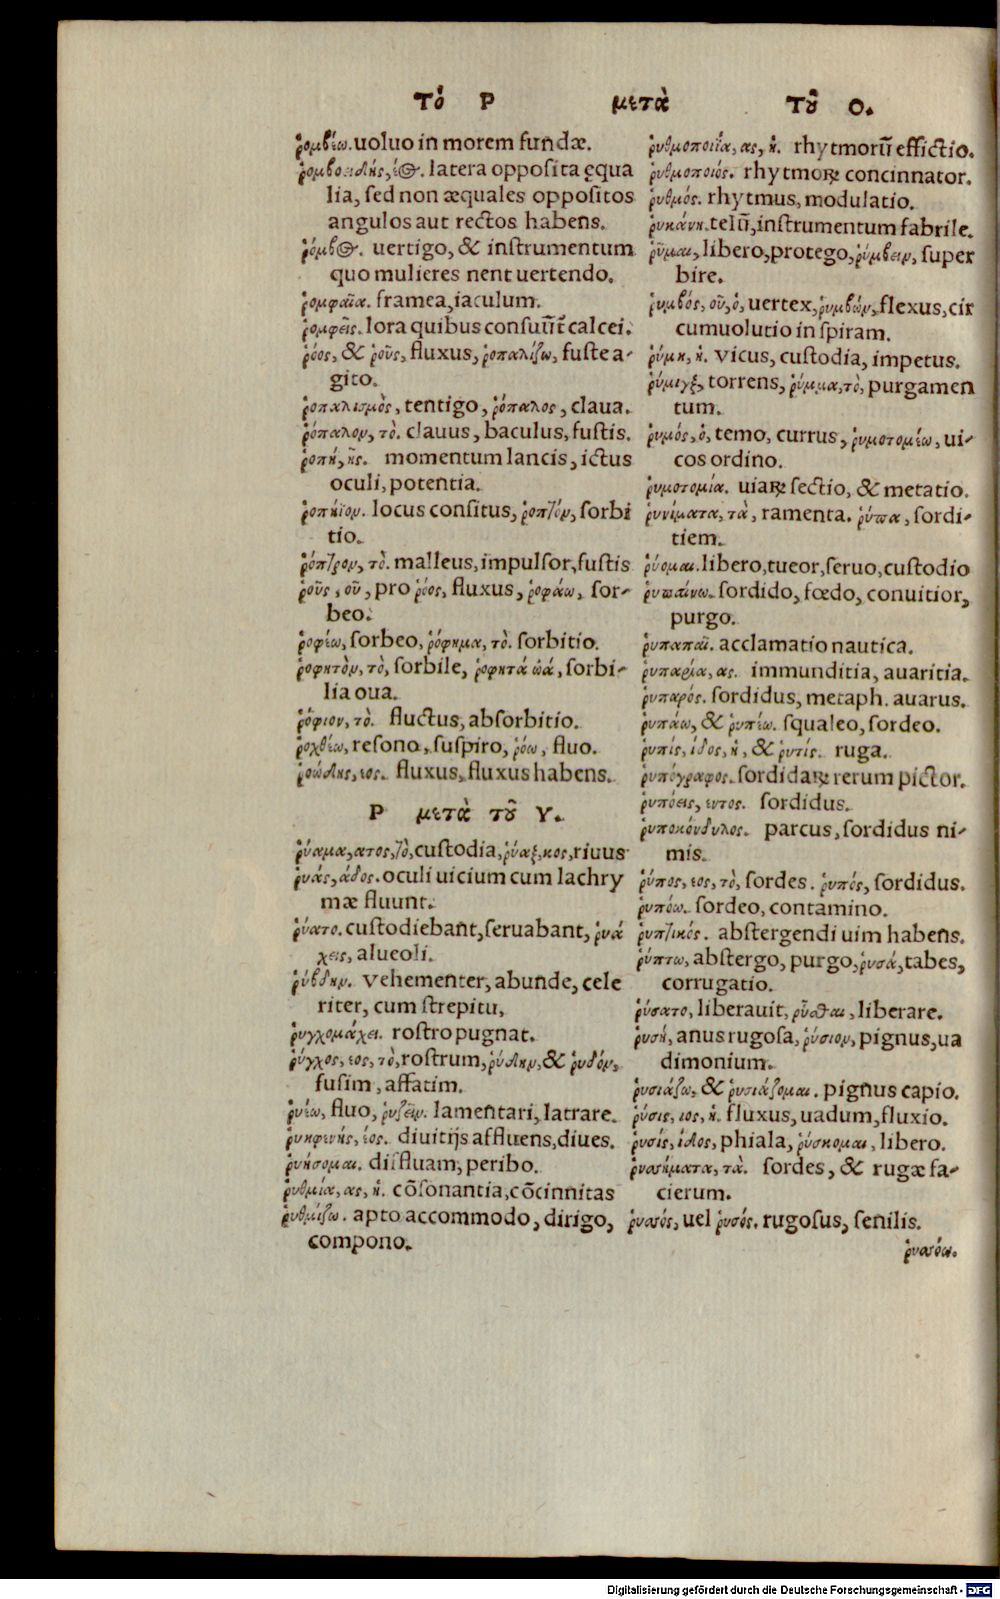 Τὸ Ρ μετὰ τοῦ Ο.
ῥομβέω. uoluo in morem fundæ.
ῥομβοειδὴς, έος. latera opposita ęqua
lia, sed non æquales oppositos
angulos aut rectos habens.
ῥόμβος. uertigo, & instrumentum
quo mulieres nent uertendo.
ῥομφαῖα. framea, iaculum.
ῥομφεῖς. lora quibus consuũt̃ calcei.
ῥόος, & ῥοῦς, fluxus, ῥοπαλίζω, fuste a-
gito.
ῥοπαλισμὸς, tentigo, ῥόπαλος, claua.
ῥόπαλον, τὸ. clauus, baculus, fustis.
ῥοπὴ, ῆς. momentum lancis, ictus
oculi, potentia.
ῥοπήϊον. locus consitus, ῥοπτόν, sorbi
tio.
ῥόπτρον, τὸ. malleus, impulsor, fustis
ῥοῦς, οῦ, pro ῥόος, fluxus, ῥοφάω, sor-
beo.
ῥοφέω, sorbeo, ῥόφημα, τὸ. sorbitio.
ῥοφητὸν, τὸ, sorbile, ῥοφητά ὠά, sorbi-
lia oua.
ῥόφιον, τὸ. fluctus, absorbitio.
ῥοχθέω, resono, suspiro, ῥόω, fluo.
ῥοώδης, εος. fluxus, fluxus habens.
Ρ μετὰ τοῦ Υ.
ῥύαμα, ατος, τὸ, custodia, ῥύαξ, κος, riuus
ῥυάς, άδος. oculi uicium cum lachry
mæ fluunt.
ῥύατο. custodiebant, seruabant, ῥυά
χεις, alueoli.
ῥύβδην. vehementer, abunde, cele
riter, cum strepitu,
ῥυγχομάχει. rostro pugnat.
ῥύγχος, εος, τὸ, rostrum, ῥύδην, & ῥυδόν,
fusim, affatim.
ῥυέω, fluo, ῥυζεῖν. lamentari, latrare.
ῥυηφενής, έος. diuitijs affluens, diues.
ῥυήσομαι. diffluam, peribo.
ῥυθμία, ας, ἡ. cõsonantia, cõcinnitas
ῥυθμίζω. apto accommodo, dirigo,
compono.
ῥυθμοποιΐα, ας, ἡ. rhytmorũ effictio.
ῥυθμοποιός. rhytmoꝝ concinnator.
ῥυθμός. rhytmus, modulatio.
ῥυκάνη. telũ, instrumentum fabrile.
ῥῦμαι, libero, protego, ῥύμβειν, super
bire.
ῥυμβός, οῦ, ὁ, uertex, ῥυμβών, flexus, cir
cumuolutio in spiram.
ῥύμη, ἡ. vicus, custodia, impetus.
ῥύμιγξ, torrens, ῥύμμα, τὸ, purgamen
tum.
ῥυμός, ὁ, temo, currus, ῥυμοτομέω, ui-
cos ordino.
ῥυμοτομία. uiaꝝ sectio, & metatio.
ῥυνίματα, τὰ, ramenta. ῥύπα, sordi-
tiem.
ῥύομαι. libero, tueor, seruo, custodio
ῥυπαίνω. sordido, fœdo, conuitior,
purgo.
ῥυπαπαῖ. acclamatio nautica.
ῥυπαρία, ας. immunditia, auaritia.
ῥυπαρός. sordidus, metaph. auarus.
ῥυπάω, & ῥυπέω. squaleo, sordeo.
ῥυπίς, ίδος, ἡ, & ῥυτίς. ruga.
ῥυπόγραφος. sordidaꝝ rerum pictor.
ῥυπόεις, εντος. sordidus.
ῥυποκόνδυλος. parcus, sordidus ni-
mis.
ῥύπος, εος, τὸ, sordes. ῥυπός, sordidus.
ῥυπόω. sordeo, contamino.
ῥυπτικός. abstergendi uim habens.
ῥύπτω, abstergo, purgo, ῥυσά, tabes,
corrugatio.
ῥύσατο, liberauit, ῥῦσθαι, liberare.
ῥυσή, anus rugosa, ῥύσιον, pignus, ua
dimonium.
ῥυσιάζω, & ῥυσιάζομαι. pignus capio.
ῥύσις, ιος, ἡ. fluxus, uadum, fluxio.
ῥυσίς, ίδος, phiala, ῥύσκομαι, libero.
ῥυσσήματα, τὰ. sordes, & rugæ fa-
cierum.
ῥυσσός, uel ῥυσός. rugosus, senilis.
ῥυσσόω.
Digitalisierung gefördert durch die Deutsche Forschungsgemeinschaft - DFG